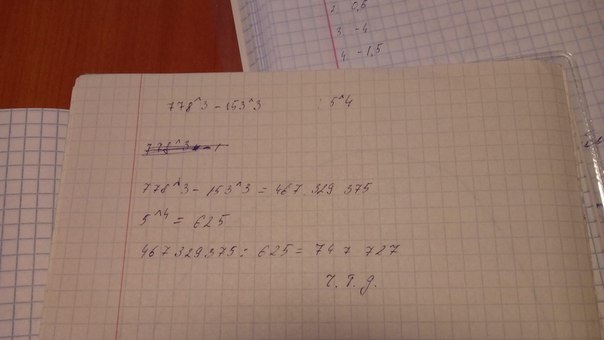 2. 0,6
3. -4
4. -1,5
778^3 - 153^3 : 5^4
778^3 - 1
778^3 - 153^3 = 467 329 375
5^4 = 625
467 329 375 : 625 = 747 727
ч.т.д.